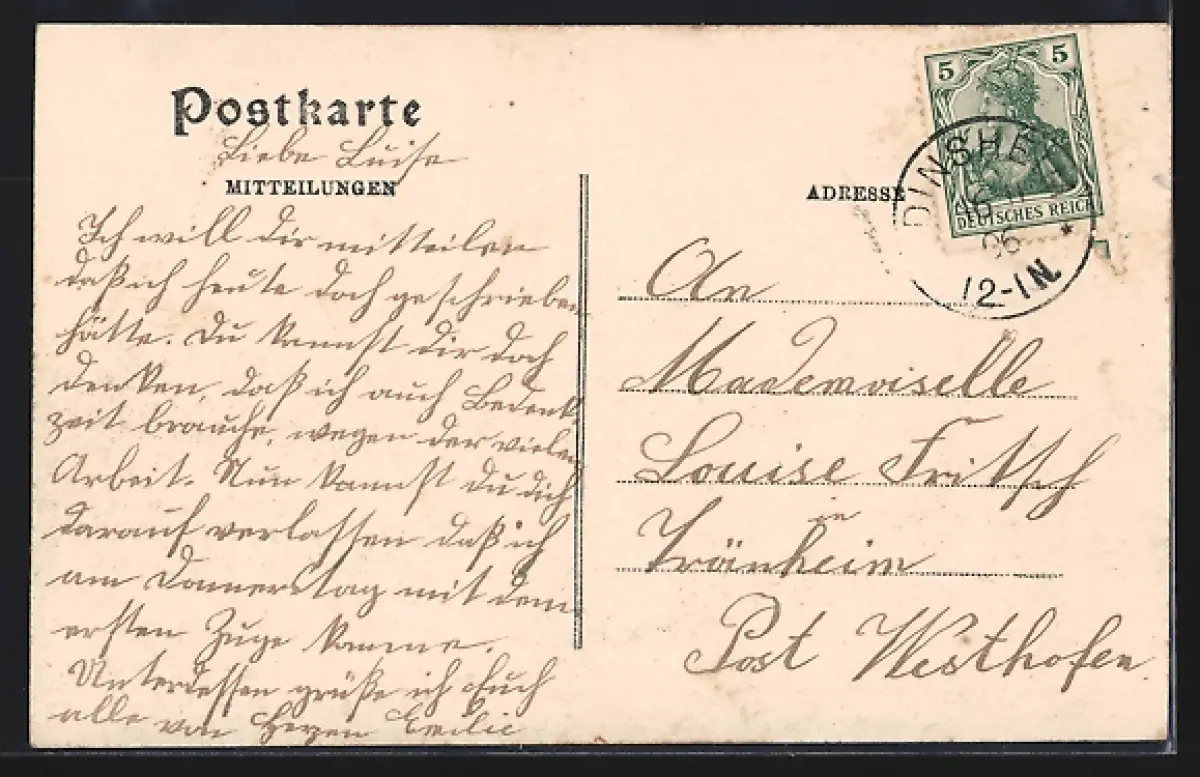 Postkarte
Liebe Luise
MITTEILUNGEN
Ich will dir mitteilen
daß ich heute doch geschrieben
hätte. Du kannst dir doch
denken, daß ich auch Bedenk
zeit brauche, wegen der vielen
Arbeit. Nun kannst Du dich
darauf verlassen daß ich
am Donnerstag mit dem
ersten Zuge komme.
Unterdessen grüße ich Euch
alle von Herzen Emilie
ADRESSE
5 5
DEUTSCHES REICH
DINSHEIM
06
12-1N.
An
Mademoiselle
Louise Fritsch
in
Tränheim
Post Westhofen